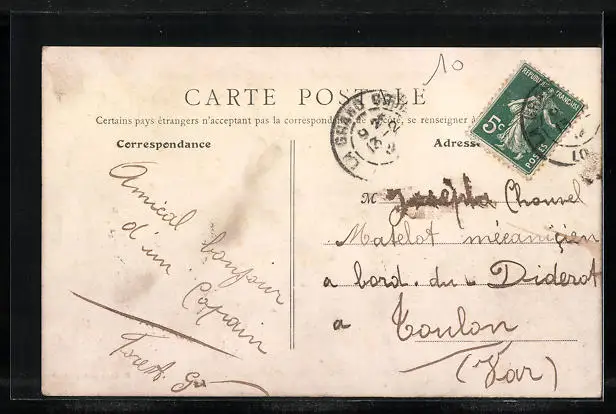 10
CARTE POSTALE
Certains pays étrangers n'acceptant pas la correspondance au recto, se renseigner à
Correspondance
Adresse
RÉPUBLIQUE FRANÇAISE
5c
POSTES
LA GRAND
Amical bonjour
d'un Copain
M Joseph Chouvel
Matelot mécanicien
a bord du Diderot
a Toulon
(Var)